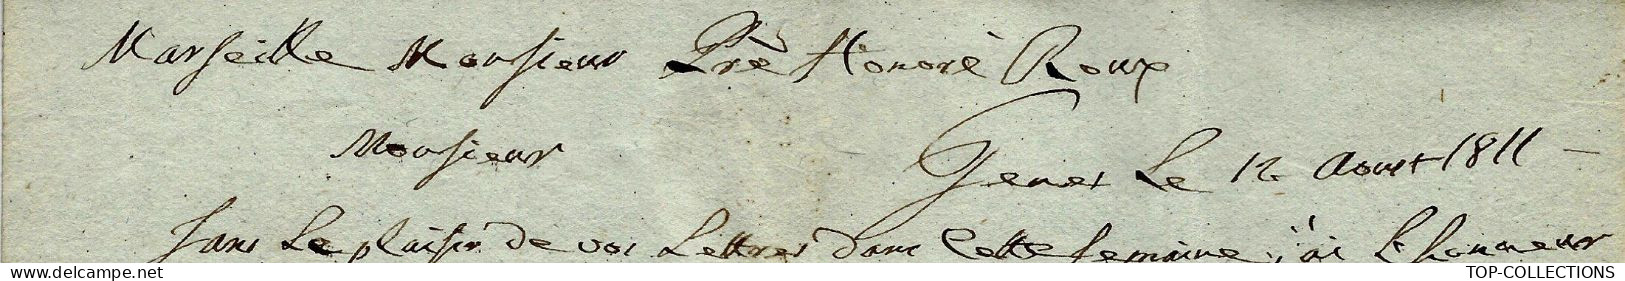 Marseille Monsieur Prè Honorè Roux
Monsieur Genes Le 12 Aoust 1811 -
Sans Le plaisir de vos Lettres dans Cette semaine, j'ai Lhonneur
TOP-COLLECTIONS